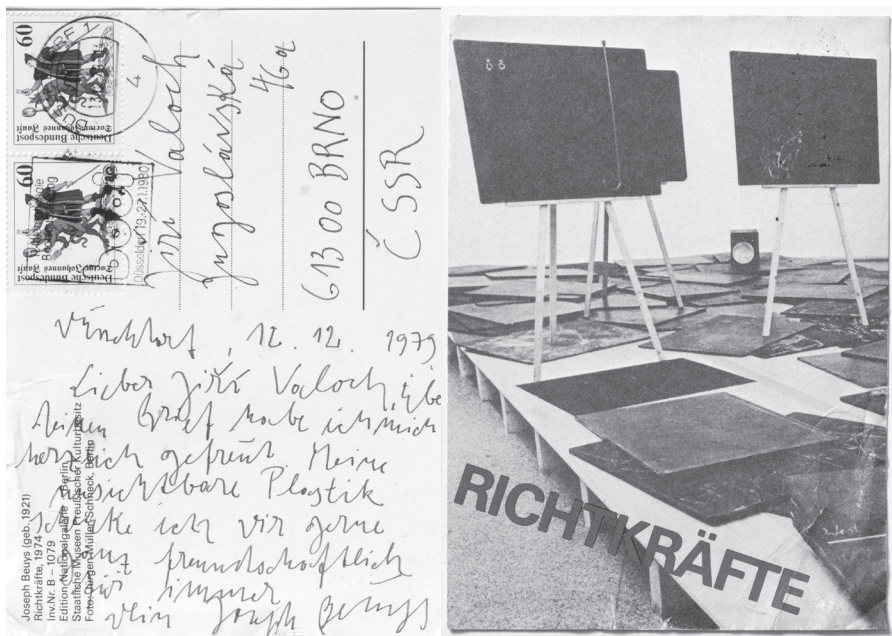 60
Doctor Johannes Faust
Deutsche Bundespost
60
Doctor Johannes Faust
Deutsche Bundespost
4
Düsseldorf 19.-27.1.1980
Jiří Valoch
Jugoslávská
46a
613 00 BRNO
ČSSR
12. 12. 1979
Lieber Jiří Valoch, über
Deinen Brief habe ich mich
herzlich gefreut. Meine
unsichtbare Plastik
schenke ich Dir gerne
ganz freundschaftlich
für immer
Dein Joseph Beuys
Joseph Beuys (geb. 1921)
Richtkräfte, 1974
Inv.Nr. B – 1079
Edition Nationalgalerie Berlin
Staatliche Museen Preußischer Kulturbesitz
Foto: Jürgen Müller-Schneck, Berlin
RICHTKRÄFTE